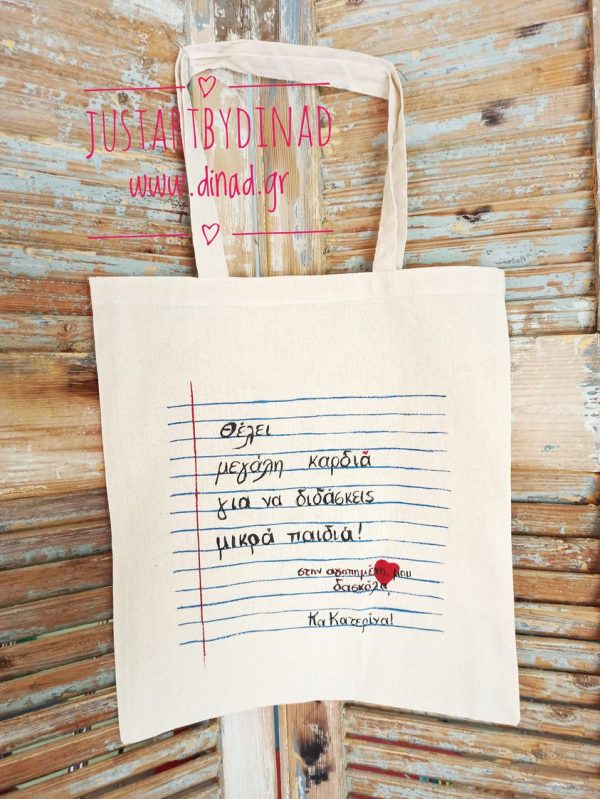 JUSTARTBYDINAD
www.dinad.gr
Θέλει
μεγάλη καρδιά
για να διδάσκεις
μικρά παιδιά!
στην αγαπημένη μου
δασκάλα,
Κα Κατερίνα!